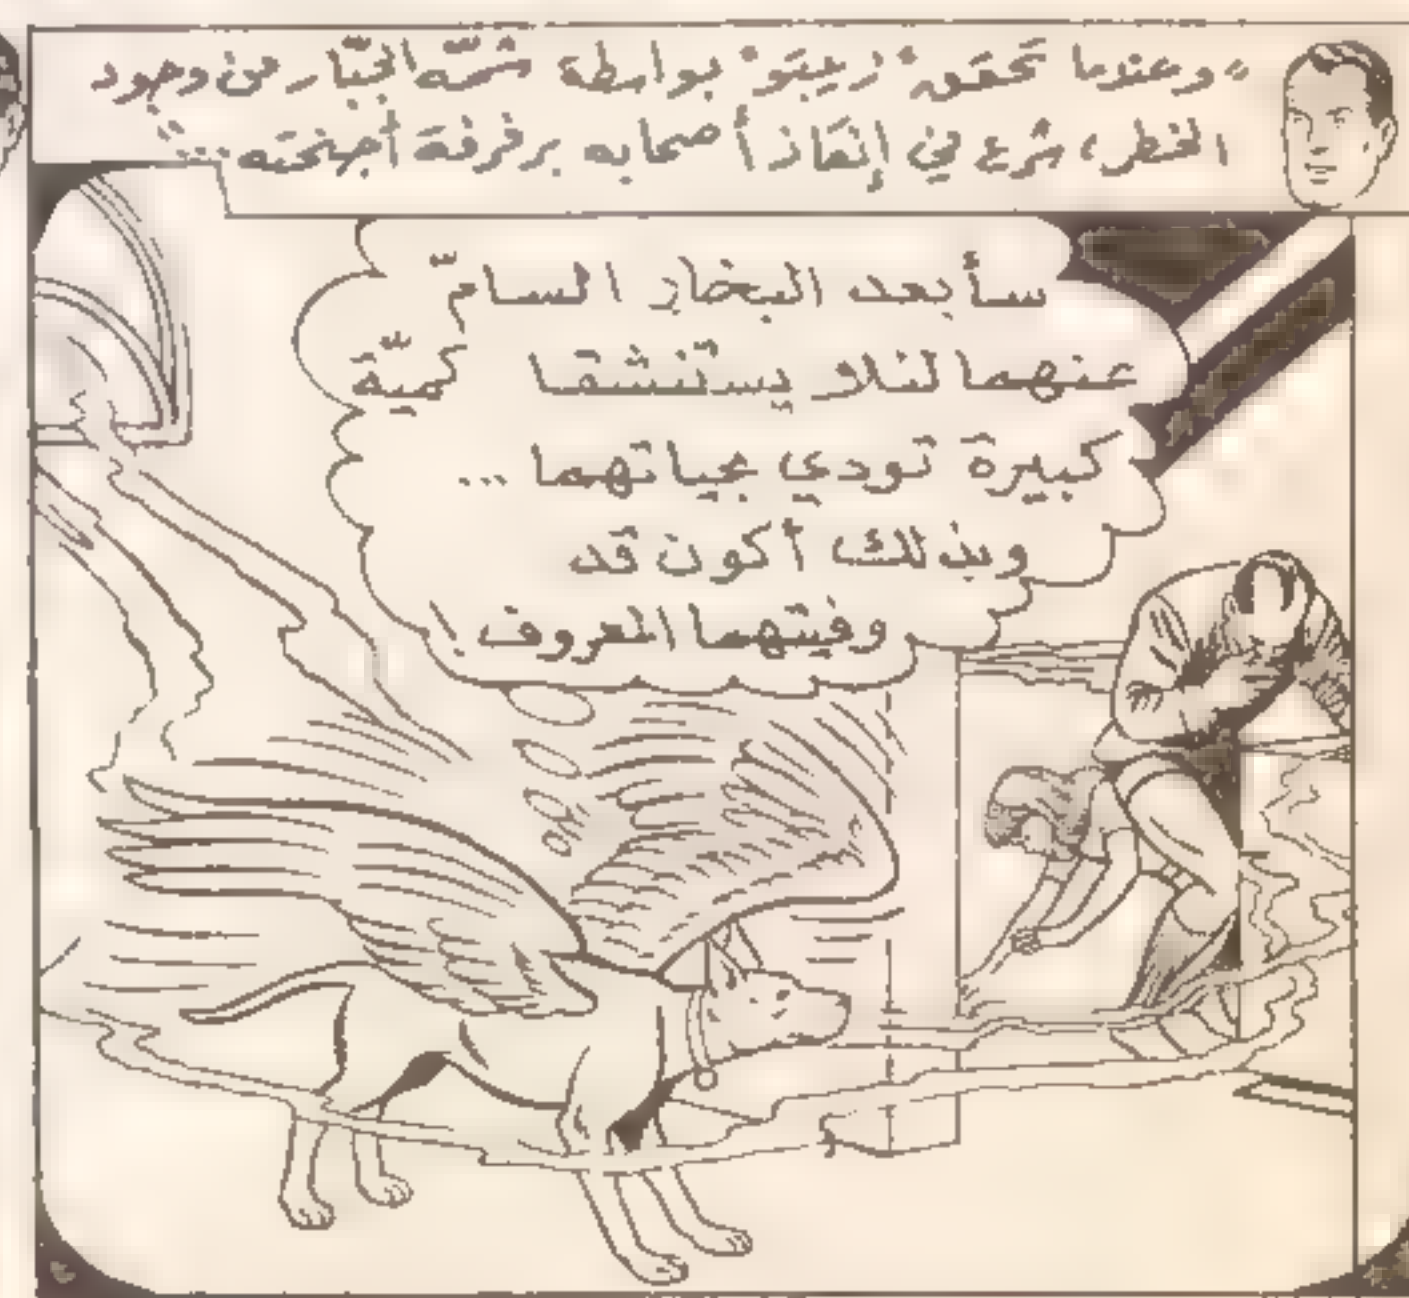 "وعندما تحقق "ريبتو" بواسطة شمّه الجبّار من وجود
الخطر، شرع في إنقاذ أصحابه برفرفة أجنحته..."
سأبعد البخار السامّ
عنهما لئلا يستنشقا كميّة
كبيرة تودي بحياتهما ...
وبذلك أكون قد
وفيتهما المعروف !